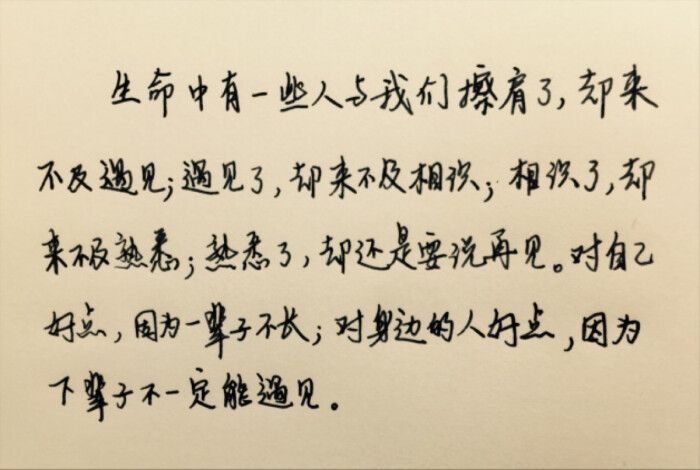 生命中有一些人与我们擦肩了，却来
不及遇见；遇见了，却来不及相识；相识了，却
来不及熟悉；熟悉了，却还是要说再见。对自己
好点，因为一辈子不长；对身边的人好点，因为
下辈子不一定能遇见。